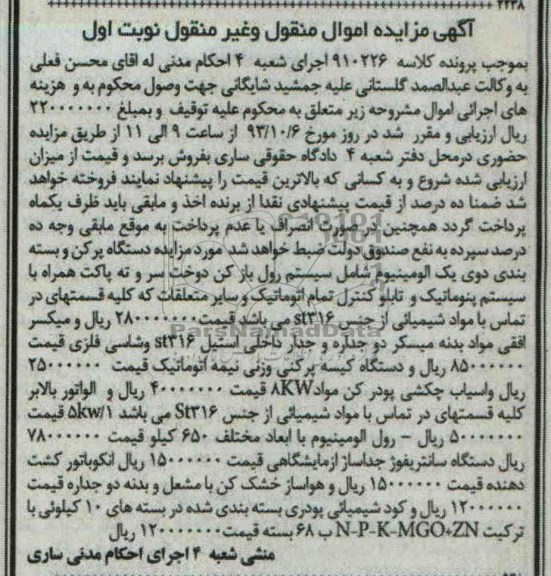 ۲۲۳۸
آگهی مزایده اموال منقول وغیر منقول نوبت اول
بموجب پرونده کلاسه ۹۱۰۲۲۶ اجرای شعبه ۴ احکام مدنی له اقای محسن فعلی
به وکالت عبدالصمد گلستانی علیه جمشید شایگانی جهت وصول محکوم به و هزینه
های اجرائی اموال مشروحه زیر متعلق به محکوم علیه توقیف و بمبلغ ۲۲۰۰۰۰۰۰۰۰
ریال ارزیابی و مقرر شد در روز مورخ ۹۳/۱۰/۶ از ساعت ۹ الی ۱۱ از طریق مزایده
حضوری درمحل دفتر شعبه ۴ دادگاه حقوقی ساری بفروش برسد و قیمت از میزان
ارزیابی شده شروع و به کسانی که بالاترین قیمت را پیشنهاد نمایند فروخته خواهد
شد ضمنا ده درصد از قیمت پیشنهادی نقدا از برنده اخذ و مابقی باید ظرف یکماه
پرداخت گردد همچنین در صورت انصراف یا عدم پرداخت به موقع مابقی وجه ده
درصد سپرده به نفع صندوق دولت ضبط خواهد شد مورد مزایده دستگاه پرکن و بسته
بندی دوی یک الومینیوم شامل سیستم رول باز کن دوخت سر و ته پاکت همراه با
سیستم پنوماتیک و تابلو کنترل تمام اتوماتیک و سایر متعلقات که کلیه قسمتهای در
تماس با مواد شیمیائی از جنس st۳۱۶ می باشد قیمت ۲۸۰۰۰۰۰۰۰ ریال و میکسر
افقی مواد بدنه میسکر دو جداره و جدار داخلی استیل st۳۱۶ وشاسی فلزی قیمت
۸۵۰۰۰۰۰۰ ریال و دستگاه کیسه پرکنی وزنی نیمه اتوماتیک قیمت ۲۵۰۰۰۰۰۰
ریال واسیاب چکشی پودر کن مواد ۸KW قیمت ۴۰۰۰۰۰۰۰ ریال و الواتور بالابر
کلیه قسمتهای در تماس با مواد شیمیائی از جنس St۳۱۶ می باشد ۵kw/۱ قیمت
۵۰۰۰۰۰۰۰ ریال – رول الومینیوم با ابعاد مختلف ۶۵۰ کیلو قیمت ۷۸۰۰۰۰۰۰
ریال دستگاه سانتریفوژ جداساز ازمایشگاهی قیمت ۱۵۰۰۰۰۰۰ ریال انکوباتور کشت
دهنده قیمت ۱۵۰۰۰۰۰۰ ریال و هواساز خشک کن با مشعل و بدنه دو جداره قیمت
۱۲۰۰۰۰۰۰ ریال و کود شیمیائی پودری بسته بندی شده در بسته های ۱۰ کیلوئی با
ترکیت N-P-K-MGO+ZN ب ۶۸ بسته قیمت ۱۲۰۰۰۰۰۰۰ ریال
منشی شعبه ۴ اجرای احکام مدنی ساری
ParsNamadData